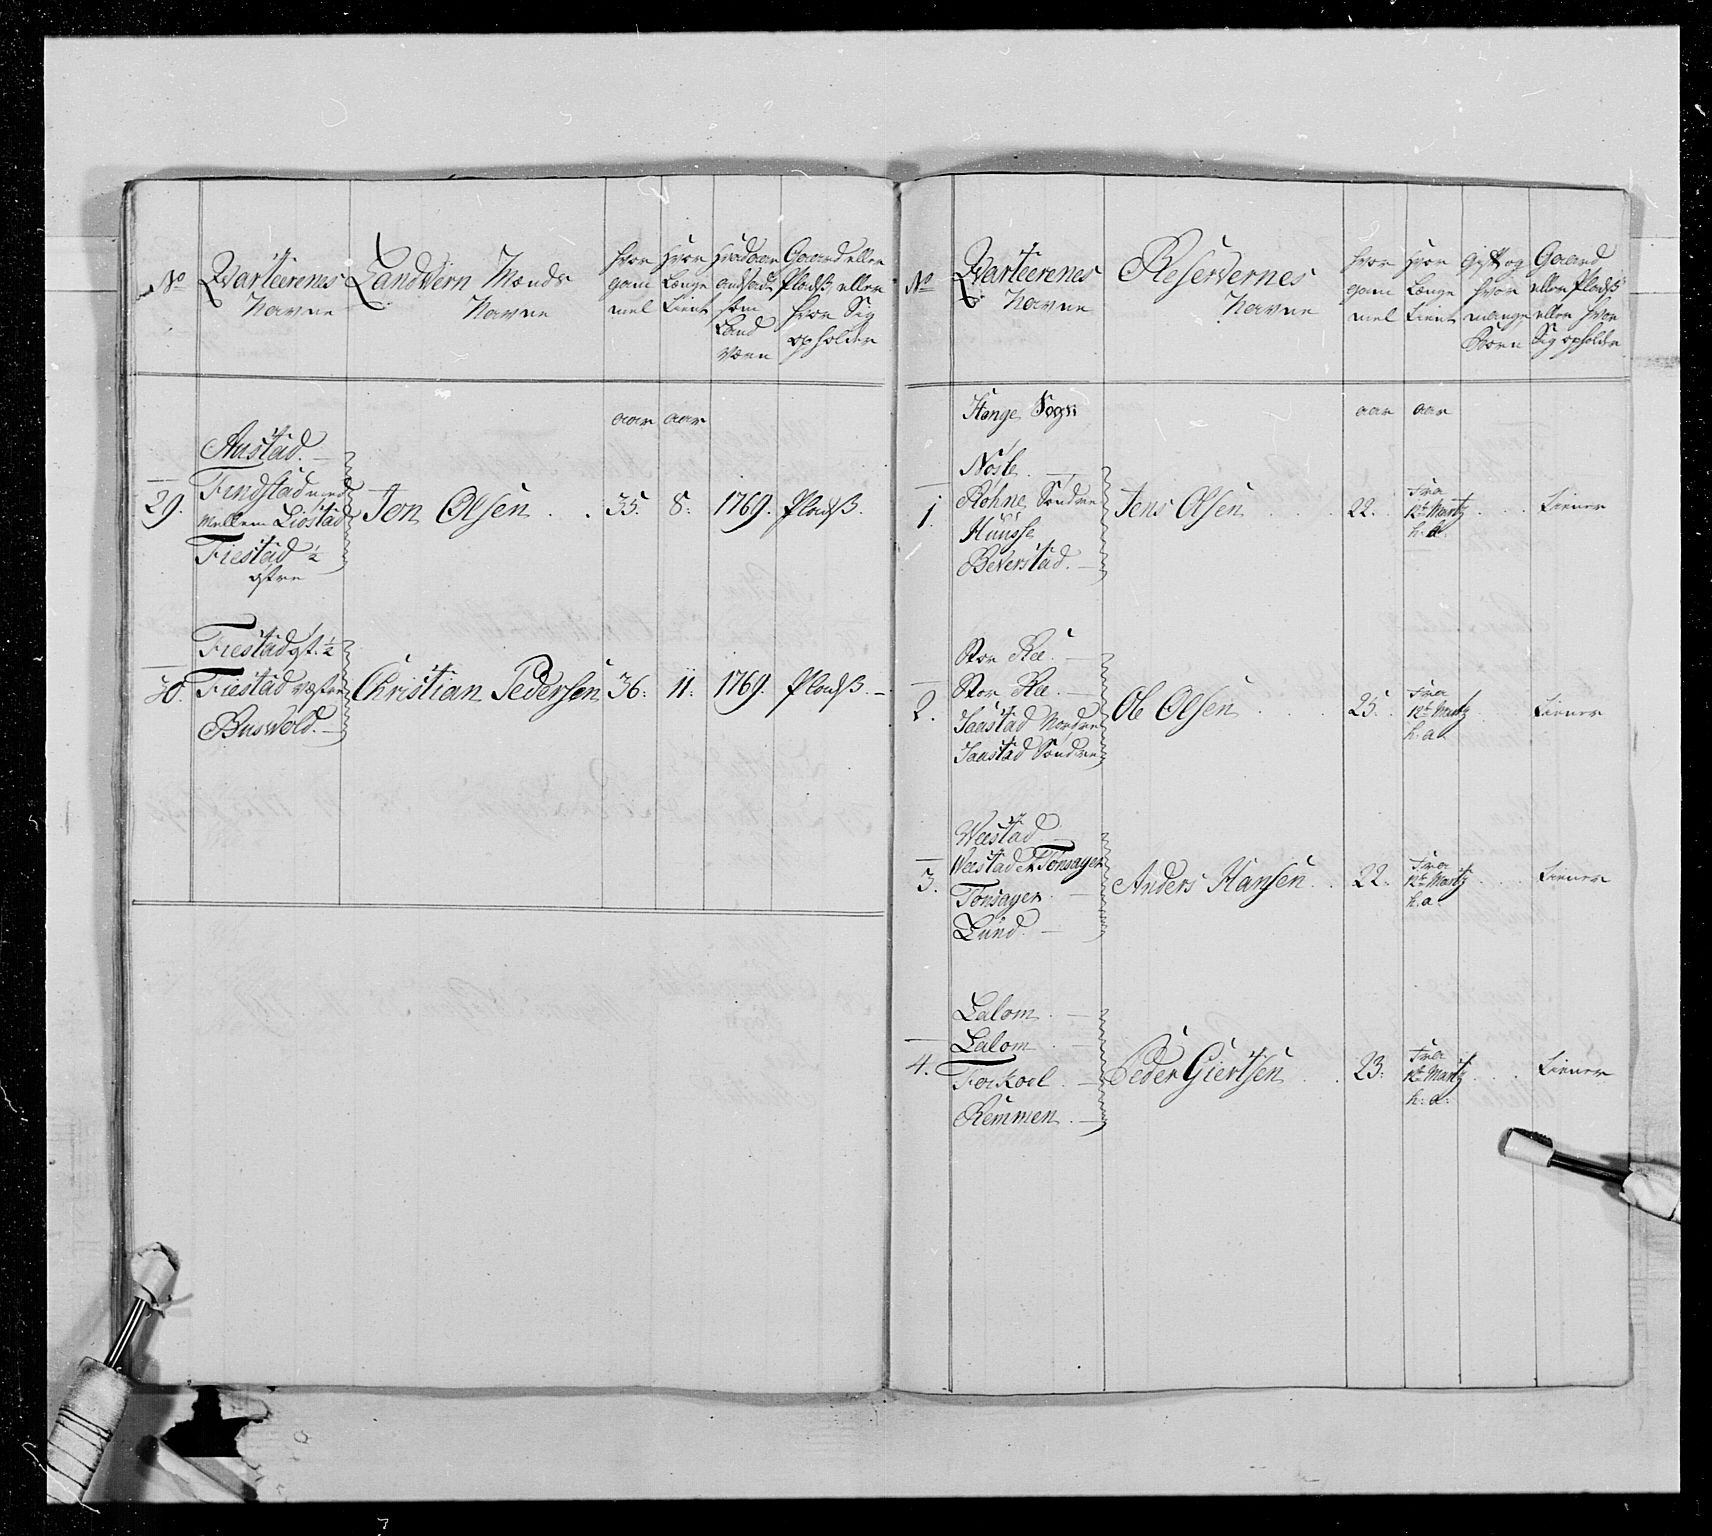 No
Qvarteerenes
Navne
Landvern Mænds
Navne
hvor
gam
mel
hvor
Længe
tient
hvad aar
andsadt
som
Land
værn
Gaard eller
Pladß eller
hvor Sig
opholder
aar aar
Austad
29.
Findstad
Mellem Liostad
Fiestad ½
østre
Jon Olsen
35. 8. 1769. Pladß.
Fiestad øst. ½
30. Fiestad Vestre
Buswold.
Christian Pedersen 36. 11. 1769. Pladß.
No
Qvarteerenes
Navne
Reservernes
Navne
hvor
gam
mel
hvor
Længe
tient
Gift og
hvor
mange
Børn
Gaard
eller Pladß
eller hvor
Sig opholder
Stange Sogn
aar aar
Nosle
1. Rohne Søndre
Huusse
Beverstad.
Jens Olsen 22.
Fra
12te Martz
h. a.
Tiener
Stor Ree
2. Stor Ree.
Saastad Nordre
Saastad Søndre
Ole Olsen 25.
Fra
12te Martz
h. a.
Tiener
Weestad
3. Weestad et Tonsager
Tonsager
Lund.
Anders Hansen 22.
Fra
12te Martz
h. a.
Tiener
Lalom
4. Lalom
Remmen.
Peder Giertsen 23.
Fra
12te Martz
h. a.
Tiener